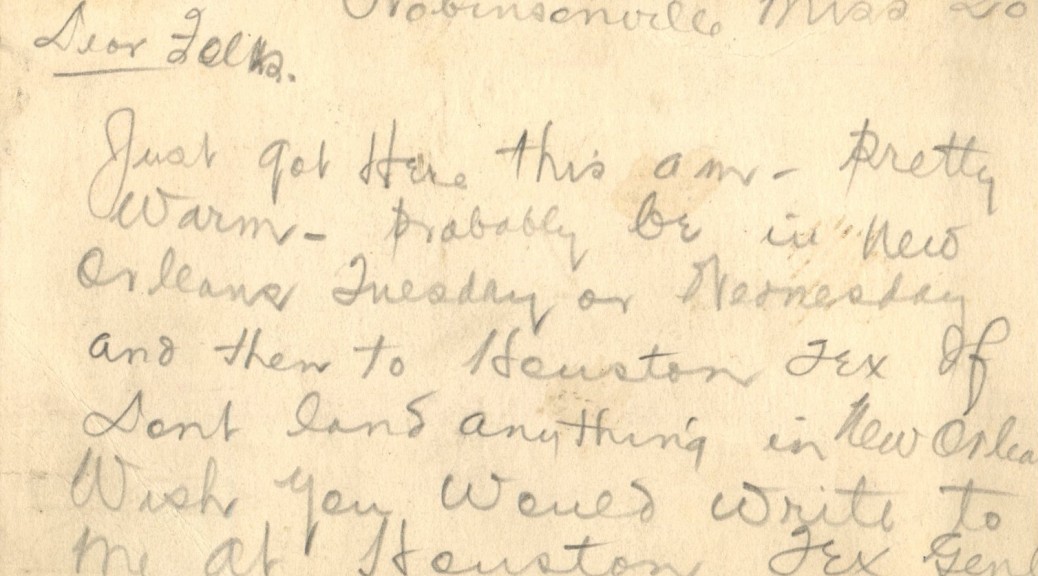 Robinsonville Miss 20
Dear Folks.
Just got Here this am - Pretty
Warm - Probably be in New
Orleans Tuesday or Wednesday
and then to Houston Tex If
Dont land anything in New Orlea
Wish you Would Write to
Me at Houston Tex Genl